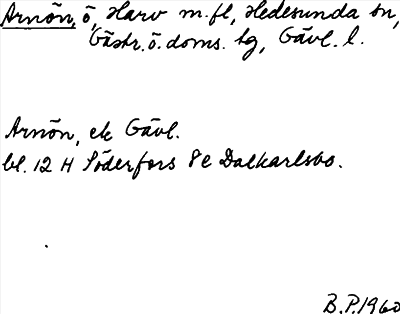 Arnön, ö, Harv m.fl, Hedesunda sn,
Gästr. ö. doms. tg, Gävl. l.
Arnön, ek Gävl.
bl. 12 H Söderfors 8e Dalkarlsbo.
B.P. 1960